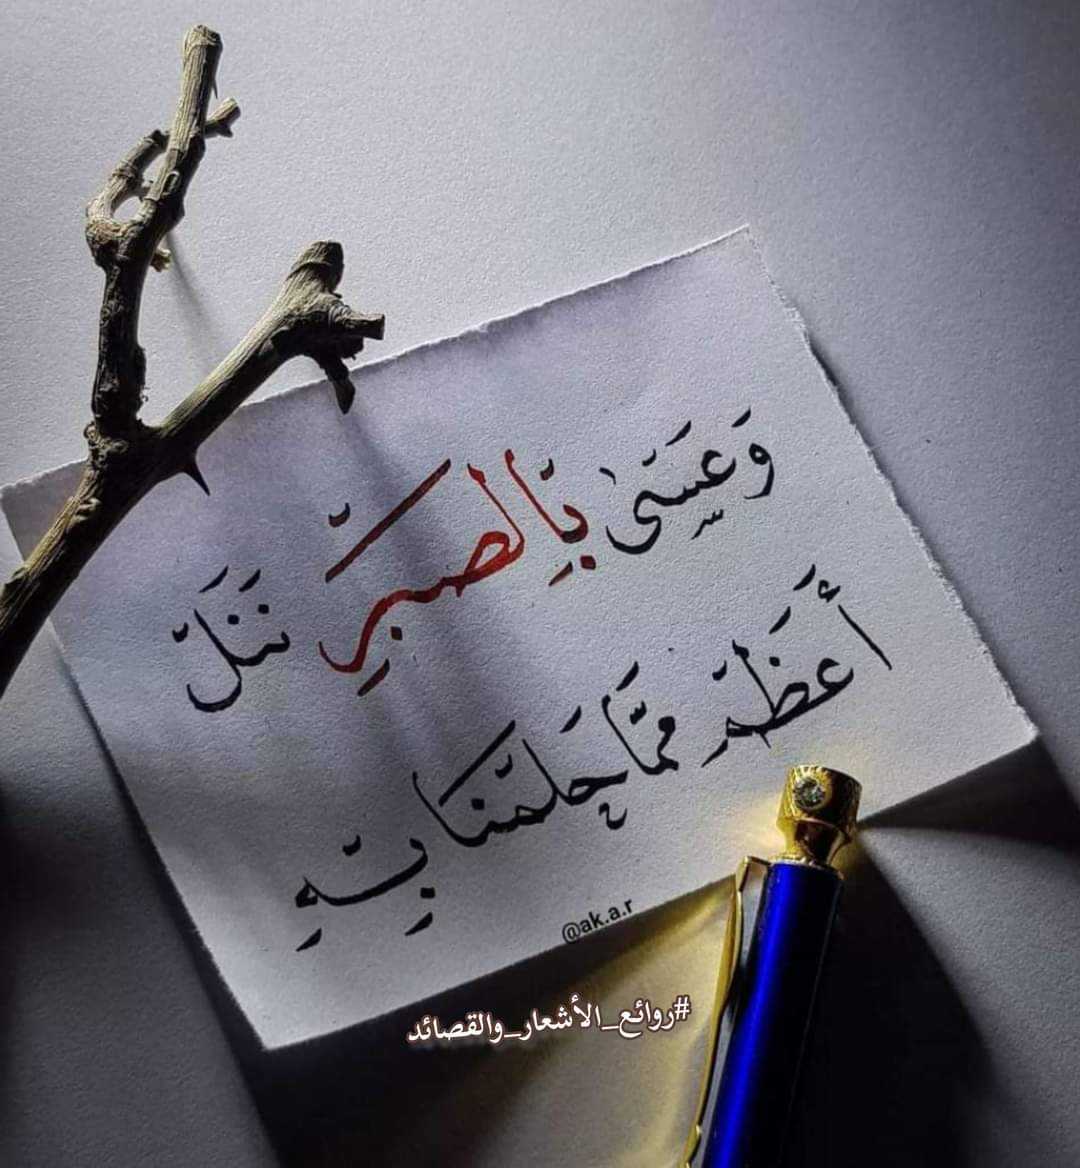 وَعَسَىٰ بِالصَّبرِ نَنَل
أَعظَم مِمَّا حَلمنَا بِهِ
@ak.a.r
#روائع_الأشعار_والقصائد